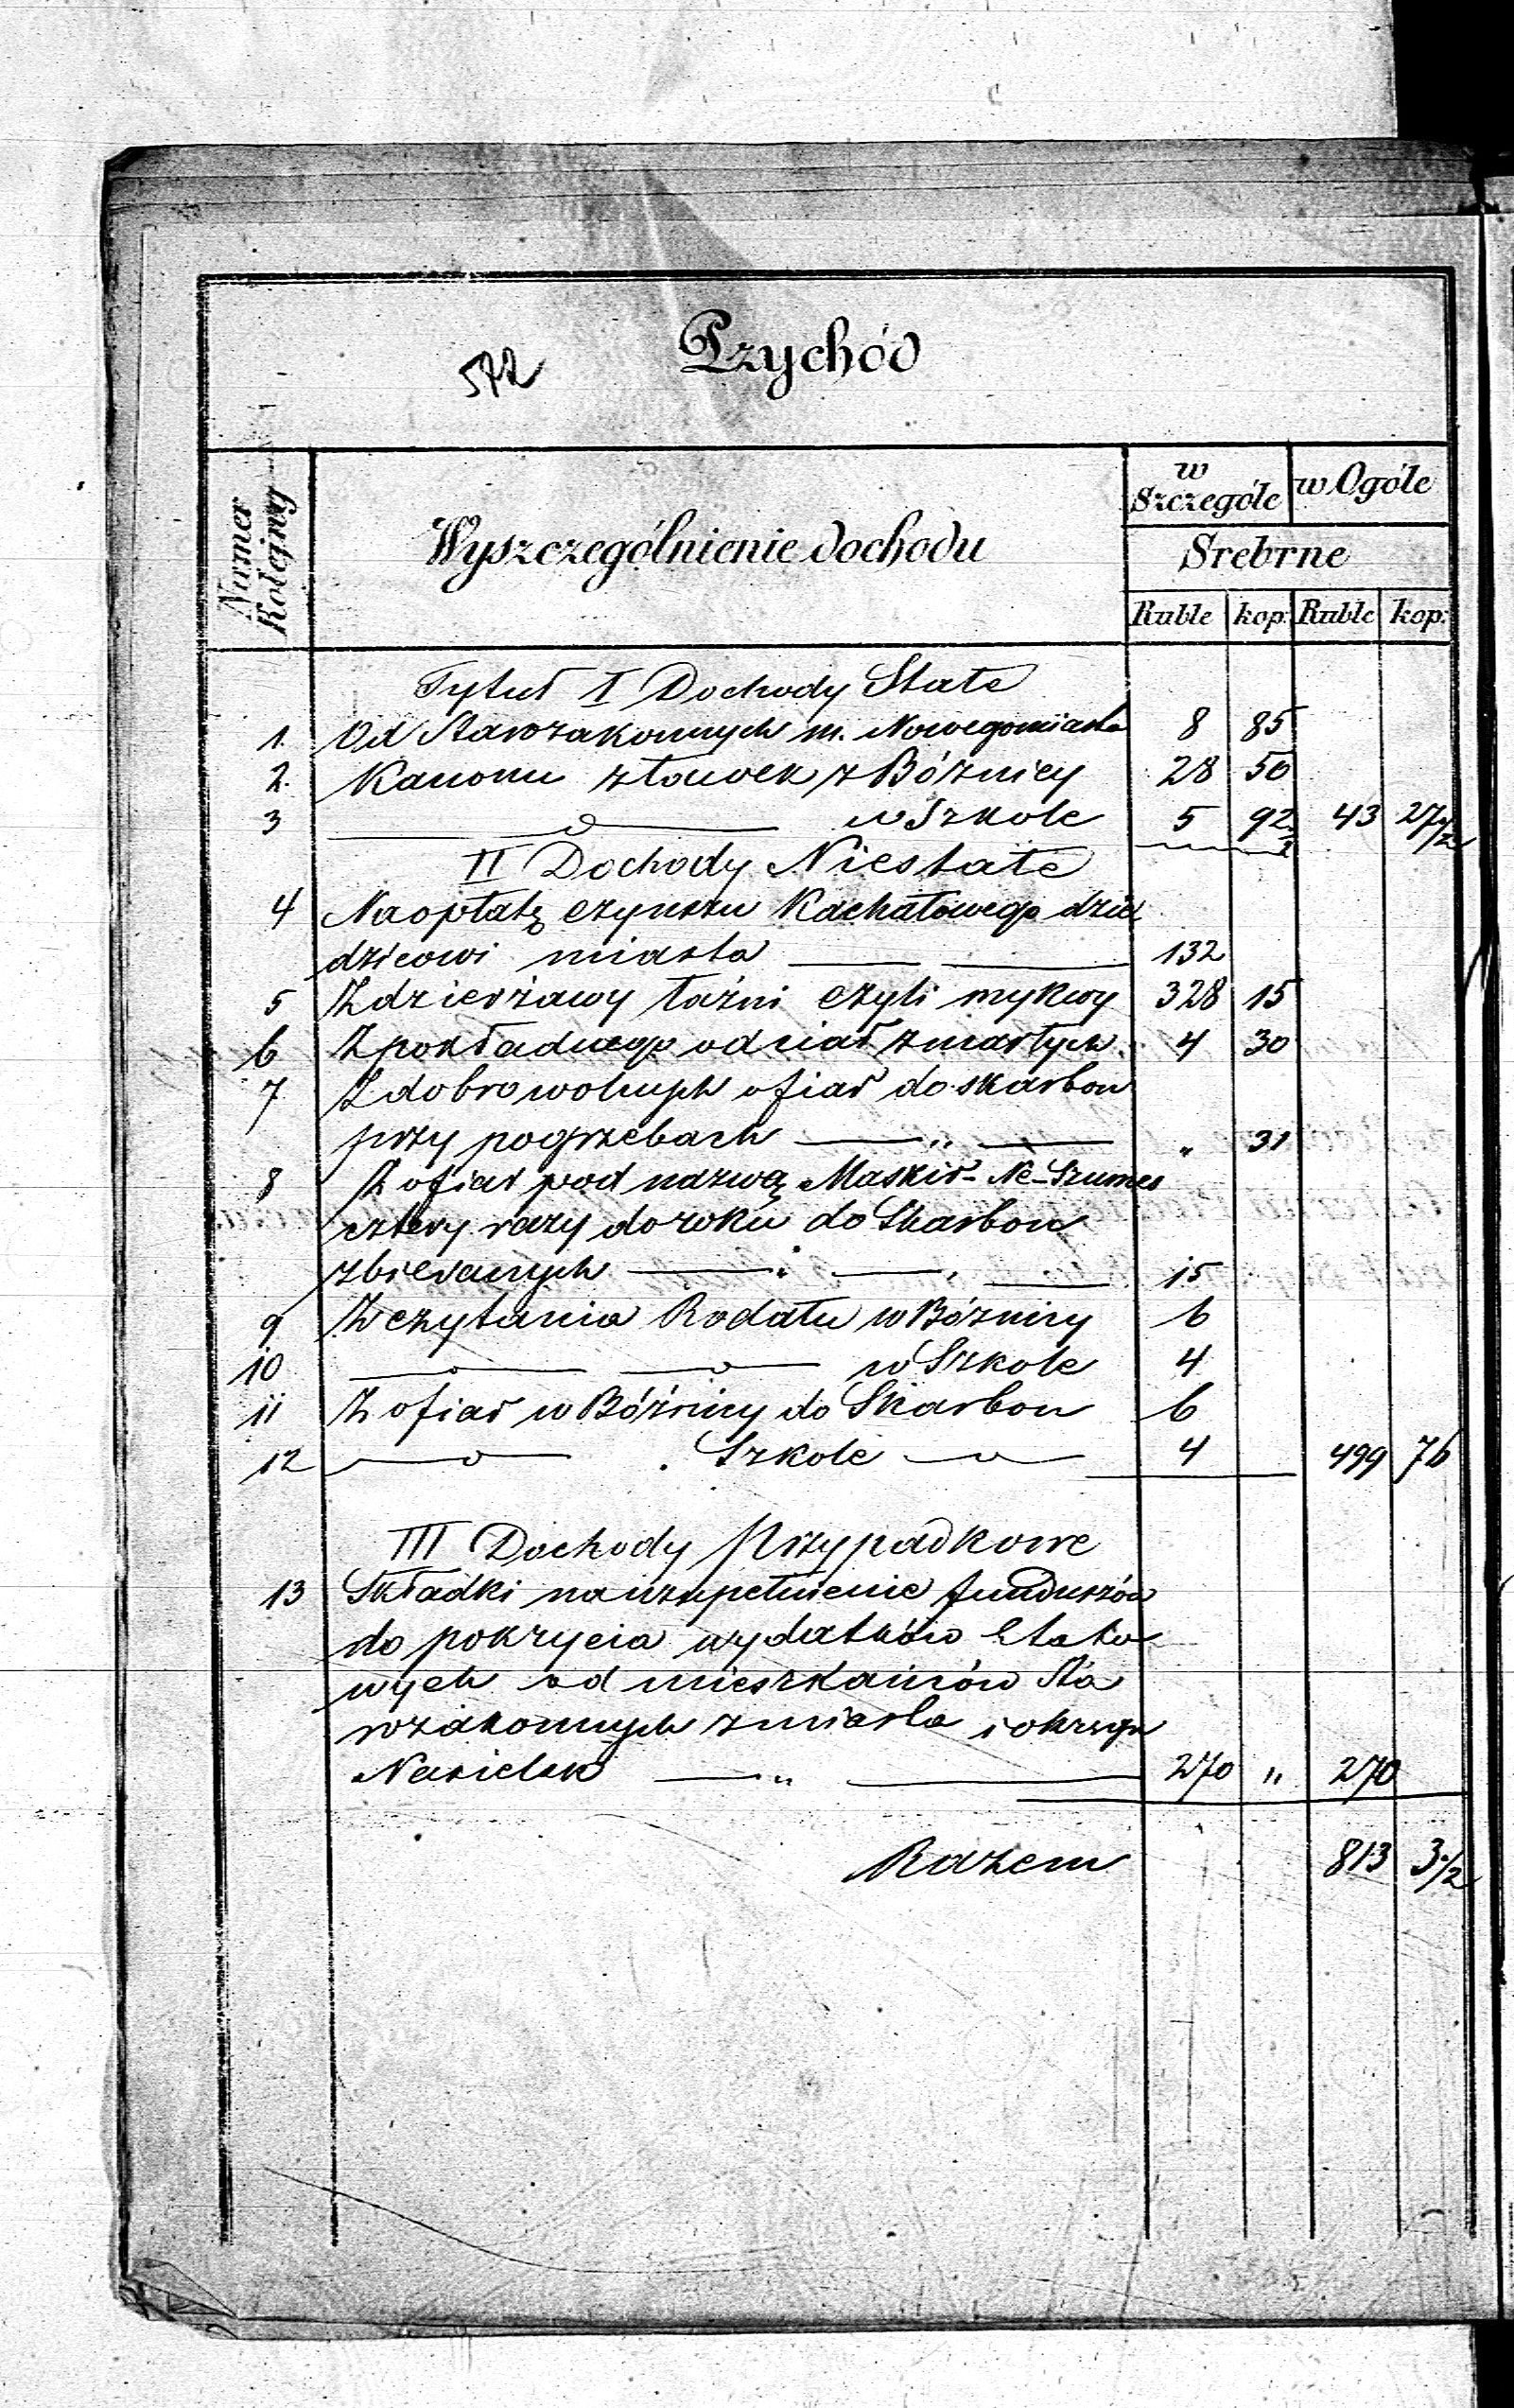 572
Przychód
Numer Kolejny
Wyszczególnienie dochodu
w Szczególe
w Ogóle
Srebrne
Ruble kop: Ruble kop:
Tytuł I Dochody Stałe
1. Od Starozakonnych m. Nowegomiasta 8 85
2. Kanonu z ławek z Bóżnicy 28 50
3 —— d —— w Szkole 5 92 1/2 43 27 1/2
II Dochody Niestałe
4 Na opłatę czynszu Kachałowego dzie
dzicowi miasta 132
5 Z dzierżawy łaźni czyli mykwy 328 15
6 Z pokładnego od ciał zmarłych 4 30
7 Z dobrowolnych ofiar do skarbon
przy pogrzebach — „ — „ 31
8 Z ofiar pod nazwą Maskir-Ne-Szumes
cztery razy do roku do Skarbon
zbieranych — „ — 15
9 Z czytania Rodału w Bóżnicy 6
10 — „ — — „ — w Szkole 4
11 Z ofiar w Bóżnicy do Skarbon 6
12 — „ — Szkole — „ — 4 499 76
III Dochody Przypadkowe
13 Składki na uzupełnienie funduszów
do pokrycia wydatków Etato
wych od mieszkańców Sta
rozakonnych z miasta i okręgu
Nasielsk — „ — 270 „ 270
Razem 813 3 1/2